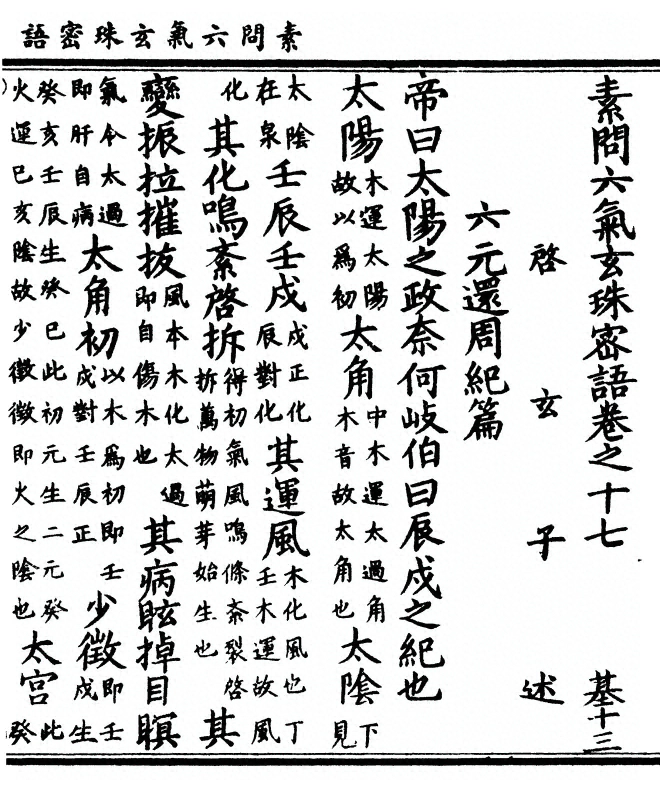 素問六氣玄珠密語
素問六氣玄珠密語卷之十七 基十三
啓玄子述
六元還周紀篇
帝曰太陽之政奈何岐伯曰辰戌之紀也
太陽木運太陽故以爲初太角中木運太過角木音故太角也太陰下見
太陰在泉壬辰壬戌戌正化辰對化其運風木化風也丁壬木運故風
化其化鳴紊啓拆得初氣風鳴條紊裂啓拆萬物萌芽始生也其
變振拉摧拔風本木化太過即自傷木也其病眩掉目瞑
氣令太過即肝自病太角初以木爲初即壬戌對壬辰正少徵即壬戌生
癸亥壬辰生癸巳此初元生二元癸火運巳亥陰故少徵徵即火之陰也太宮此癸